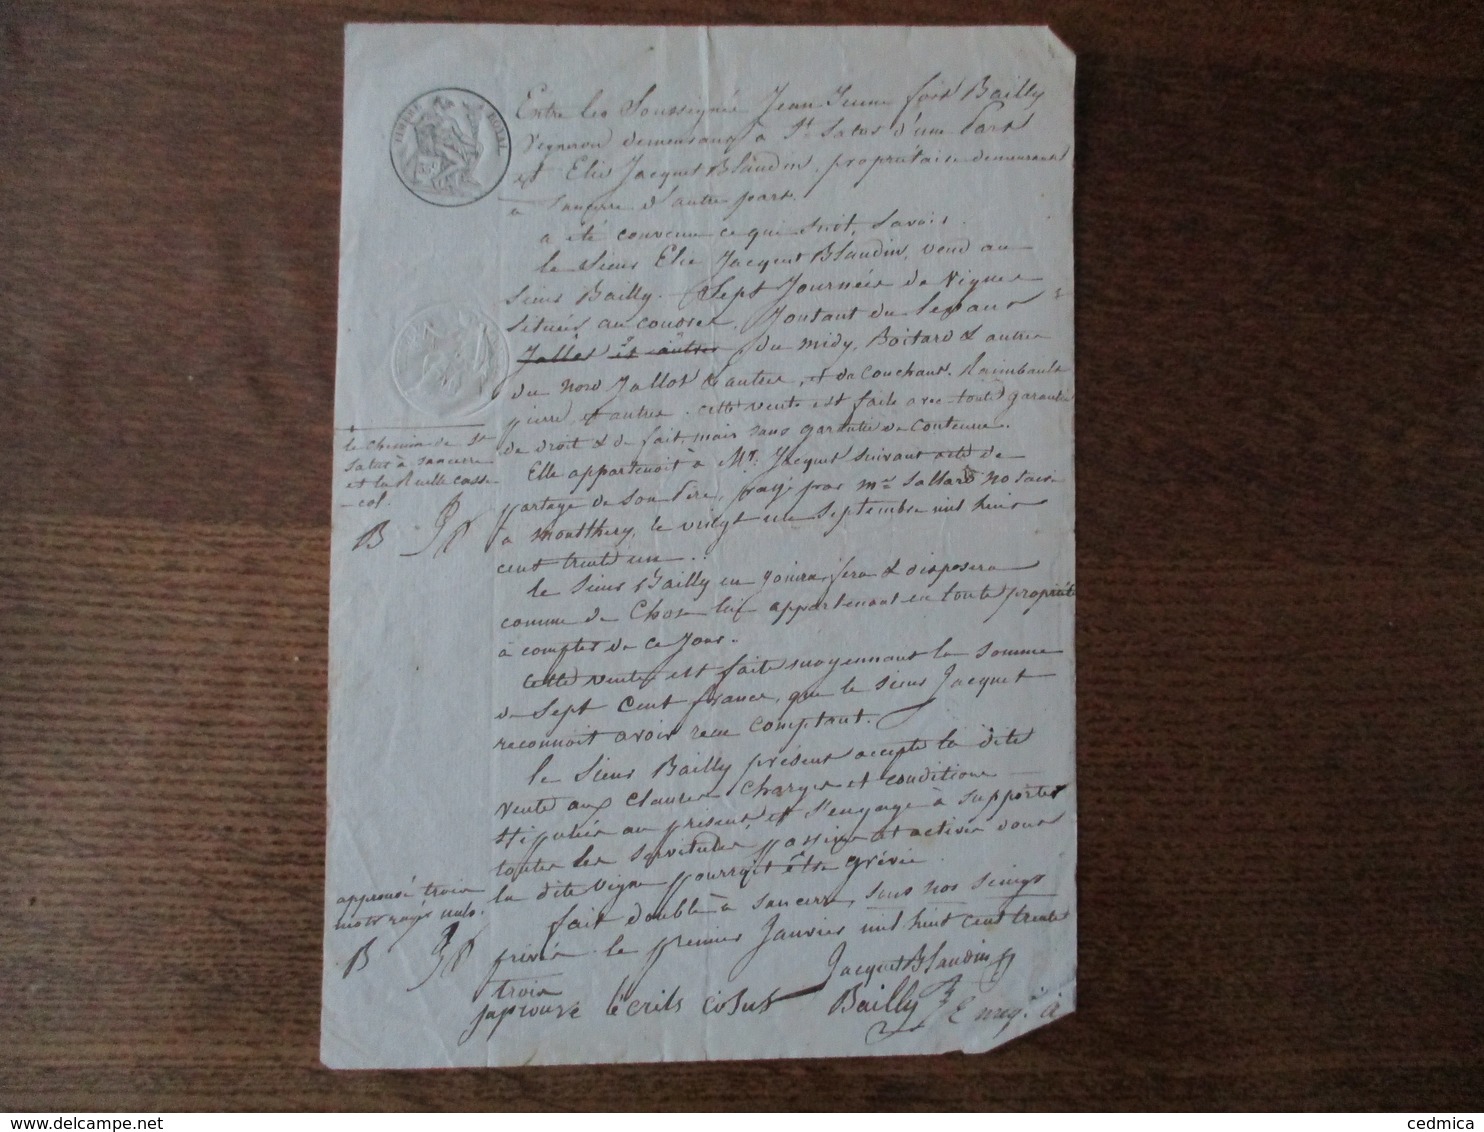 TIMBRE ROYAL
Entre les Soussignés Jean Bailly
Vigneron demeurant à St Satos d'une Part
et Elie Jacquet Blandin, propriétaire demeurant
à Sancerre d'autre part.
a été convenu ce qui suit, Savoir
le Sieur Elie Jacquet Blandin, vend au
Sieur Bailly. Sept Journées de Vignes
Situées au Joutant du levant
Jallot et autres, du midy, Boitard & autres
du Nord Jallot & autres, et du Couchant. Raimbault
pierre, et autres. cette vente est faite avec toute garantie
de droit & de fait, mais sans garantie de Contenue.
le chemin de St
Satos à Sancerre
et la Ruelle casse
-col.
B
Elle appartenoit à Mr. Jacquet suivant acte de
partage de Son Père, passé par me Sallard Notaire
à Montthery, le vingt un Septembre mil huit
cent trente un.
le Sieur Bailly en jouira, fera & disposera
comme de Chose lui appartenant en toute propriété
à compter de ce Jour.
Cette vente est faite moyennant la Somme
de Sept Cent francs, que le Sieur Jacquet
reconnoit avoir recu comptant.
le Sieur Bailly présent accepte la dite
Vente aux clauses Charges et conditions
Stipulées au présent, et S'engage à Supporter
toutes les Servitudes passives et actives dont
la dite vigne pourrait être grévée.
approuvé trois
mots rayés nuls.
B
fait double à Sancerre, Sous nos Seings
privés le premier Janvier mil huit cent trente
trois
Jacquet Blandin
japrouve lécrits cidsus Bailly
Enreg. à
cedmica